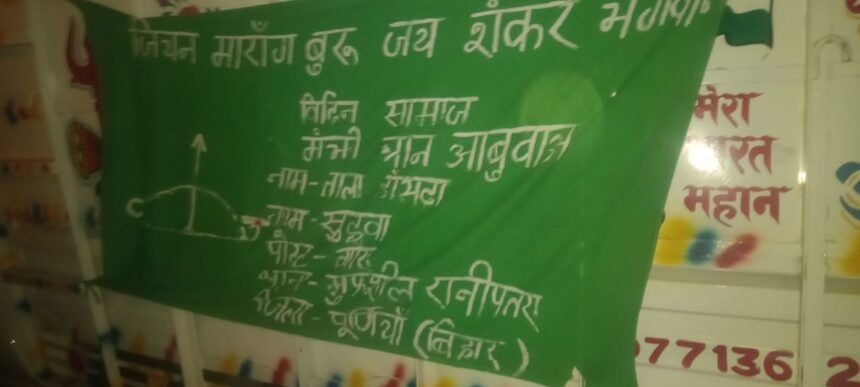 जिचन माराँग बुरू जय शंकर भगवान
विदिन सामाज
मंझी थान आबुवाअ
नाम - ताला
नाम - सुडुवा
पोस्ट -
थाना - मुफ्फसील रानीपतरा
जिला - पूर्णियाँ (बिहार)
मेरा
भारत
महान
077136